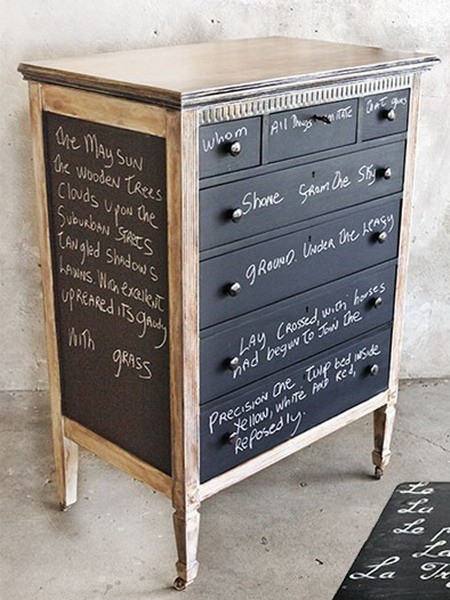 the MAY SUN
the wooden trees
Clouds upon the
Suburban streets
tangled shadows
Lawns. With excellent
upreared its gaudy
With
grass
Whom
All Things imitate
that guy
Shone from the Sky
GROUND. Under the Leafy
LAY Crossed, with horses
had begun to Join the
PRECISION the Tulip bed inside
Yellow, White AND Red,
reposedly.
Le
La
Le
La
La